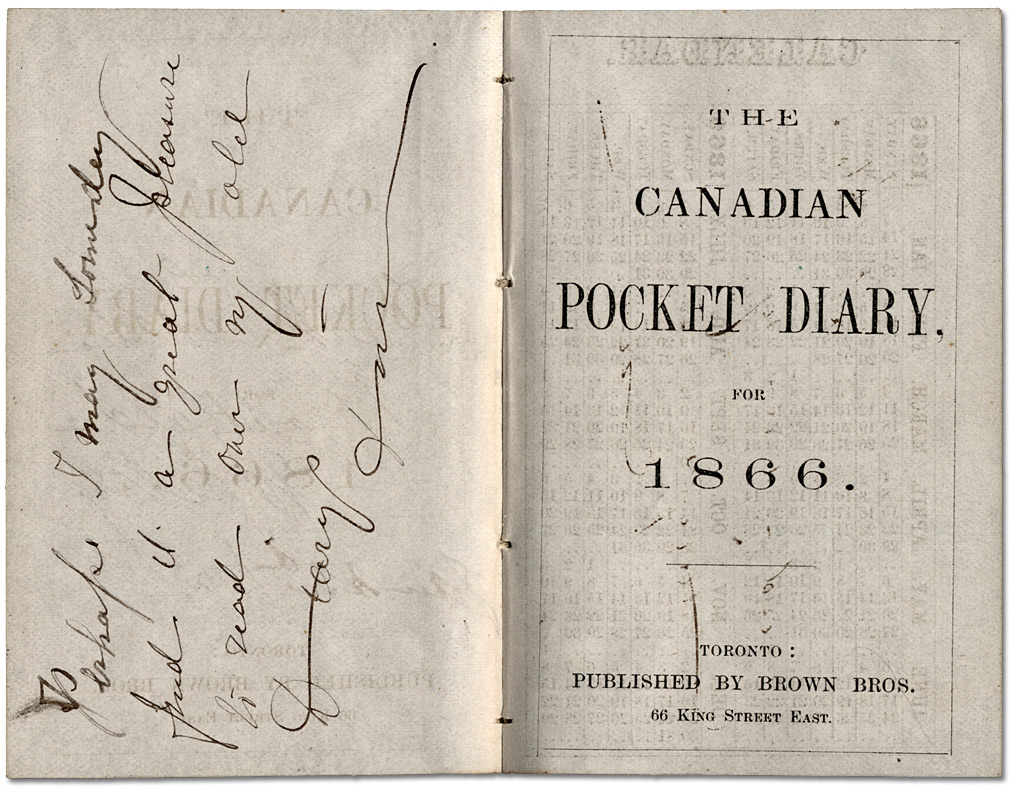 Perhaps I may Someday
find it a great pleasure
to read over my old
Diary
THE
CANADIAN
POCKET DIARY,
FOR
1866.
TORONTO:
PUBLISHED BY BROWN BROS.
66 KING STREET EAST.